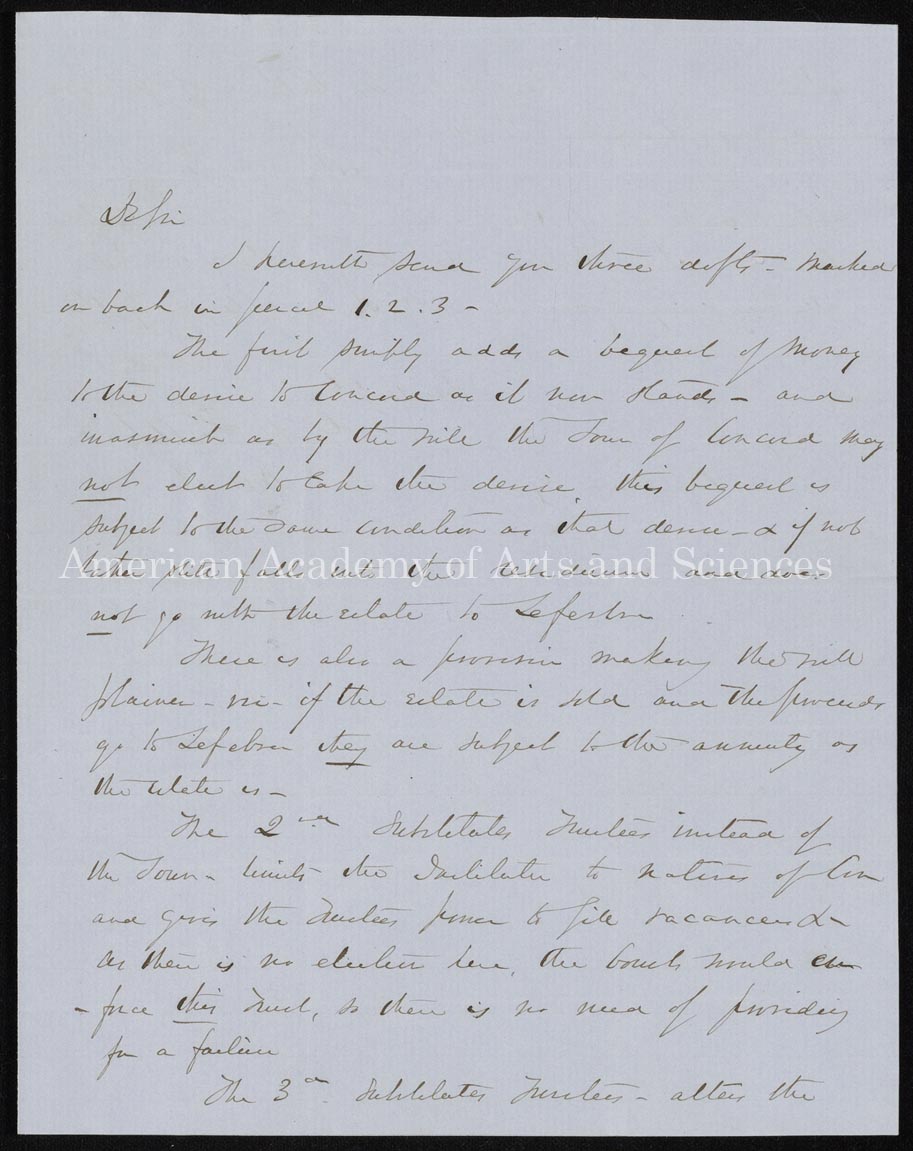 Dr Sir
I herewith send you three drfts - marked
on back in pencil 1. 2. 3 -
The first simply adds a bequest of money
to the devise to Concord as it now stands - and
inasmuch as by the will the Town of Concord may
not elect to take the devise, this bequest is
subject to the same condition as that devise - & if not
taken falls into the residuum and does
not go with the estate to Lefebre
There is also a provision making the will
plainer - viz - if the estate is sold and the proceeds
go to Lefebre they are subject to the annuity as
the estate is -
The 2nd Substitutes Trustees instead of
the Town - limits the Institute to natives of Con
and gives the Trustees power to fill vacancies & -
As there is no election here, the Courts would en
- force this Trust, so there is no need of providing
for a failure
The 3d Substitutes Trustees - alters the
American Academy of Arts and Sciences